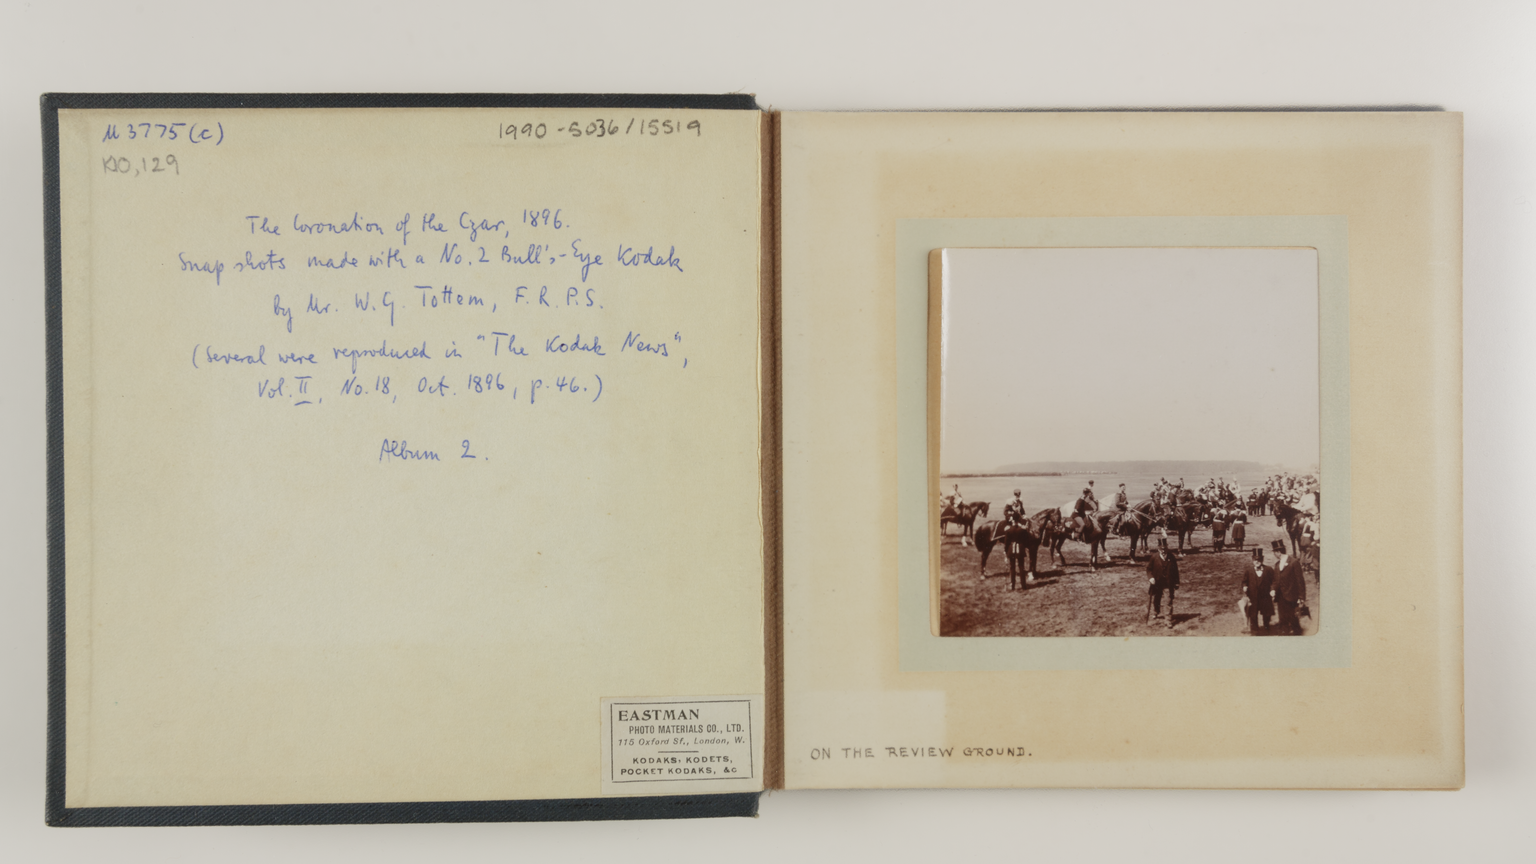 M3775(c)
1990-5036/15519
KO,129
The Coronation of the Czar, 1896.
Snap shots made with a No. 2 Bull's-Eye Kodak
by Mr. W.G. Tottem, F.R.P.S.
(Several were reproduced in "The Kodak News",
Vol. II, No. 18, Oct. 1896, p. 46.)
Album 2.
EASTMAN
PHOTO MATERIALS CO., LTD.
115 Oxford St., London, W.
KODAKS, KODETS,
POCKET KODAKS, &c
ON THE REVIEW GROUND.